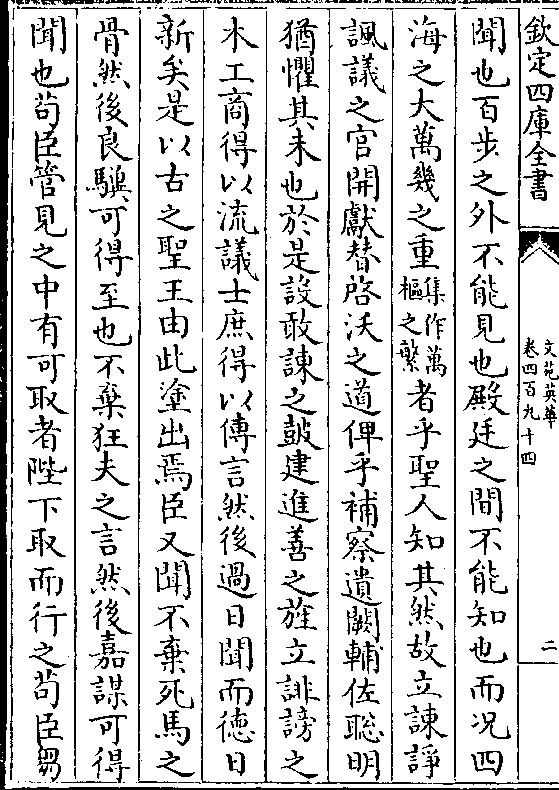 欽定四庫全書
文苑英華
卷四百九十四
二
聞也百步之外不能見也殿廷之間不能知也而况四
海之大萬幾之重集作萬樞之繁者乎聖人知其然故立諫諍
諷議之官開獻替啓沃之道俾乎補察遺闕輔佐聰明
猶懼其未也於是設敢諫之鼓建進善之旌立誹謗之
木工商得以流議士庶得以傳言然後過日聞而徳日
新矣是以古之聖王由此塗出焉臣又聞不棄死馬之
骨然後良驥可得至也不棄狂夫之言然後嘉謀可得
聞也苟臣管見之中有可取者陛下取而行之苟臣芻